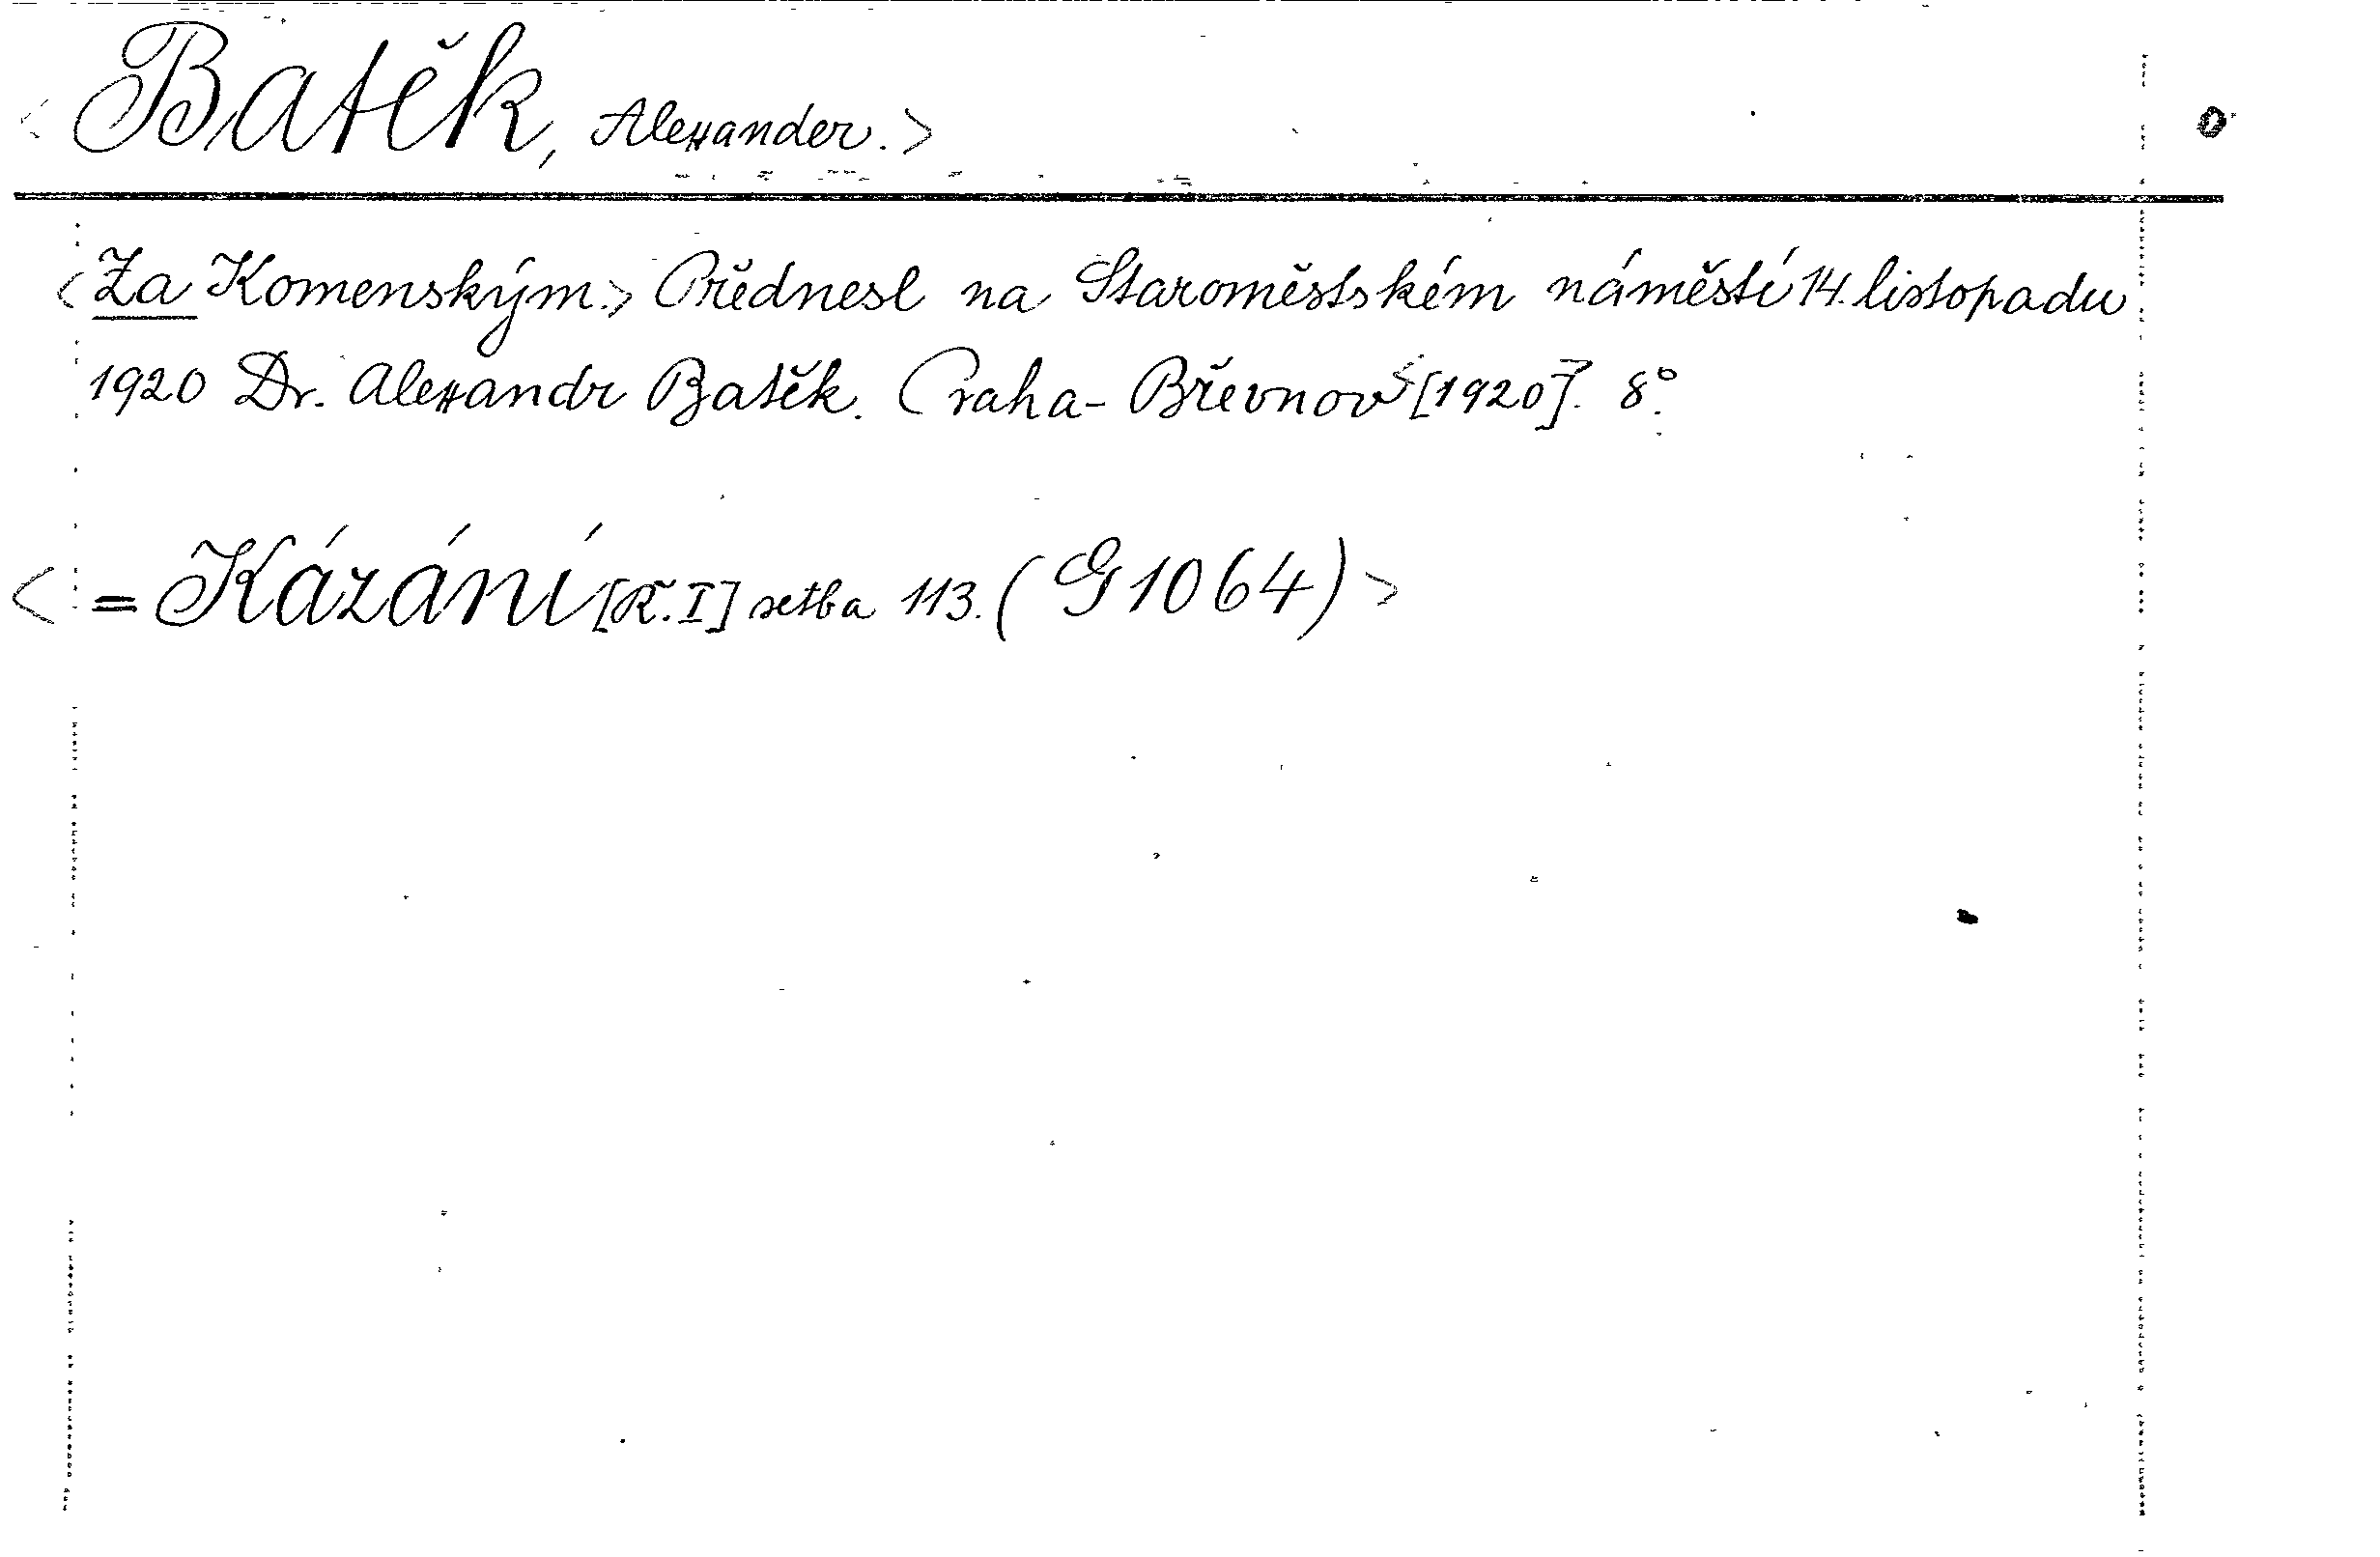 < Batěk, Alexander. >
< Za Komenským. > Přednesl na Staroměstském náměstí 14. listopadu
1920 Dr. Alexandr Batěk. Praha-Břevnov [1920]. 8°.
< = Kázání [Ř. I] setba 113. (G 1064) >